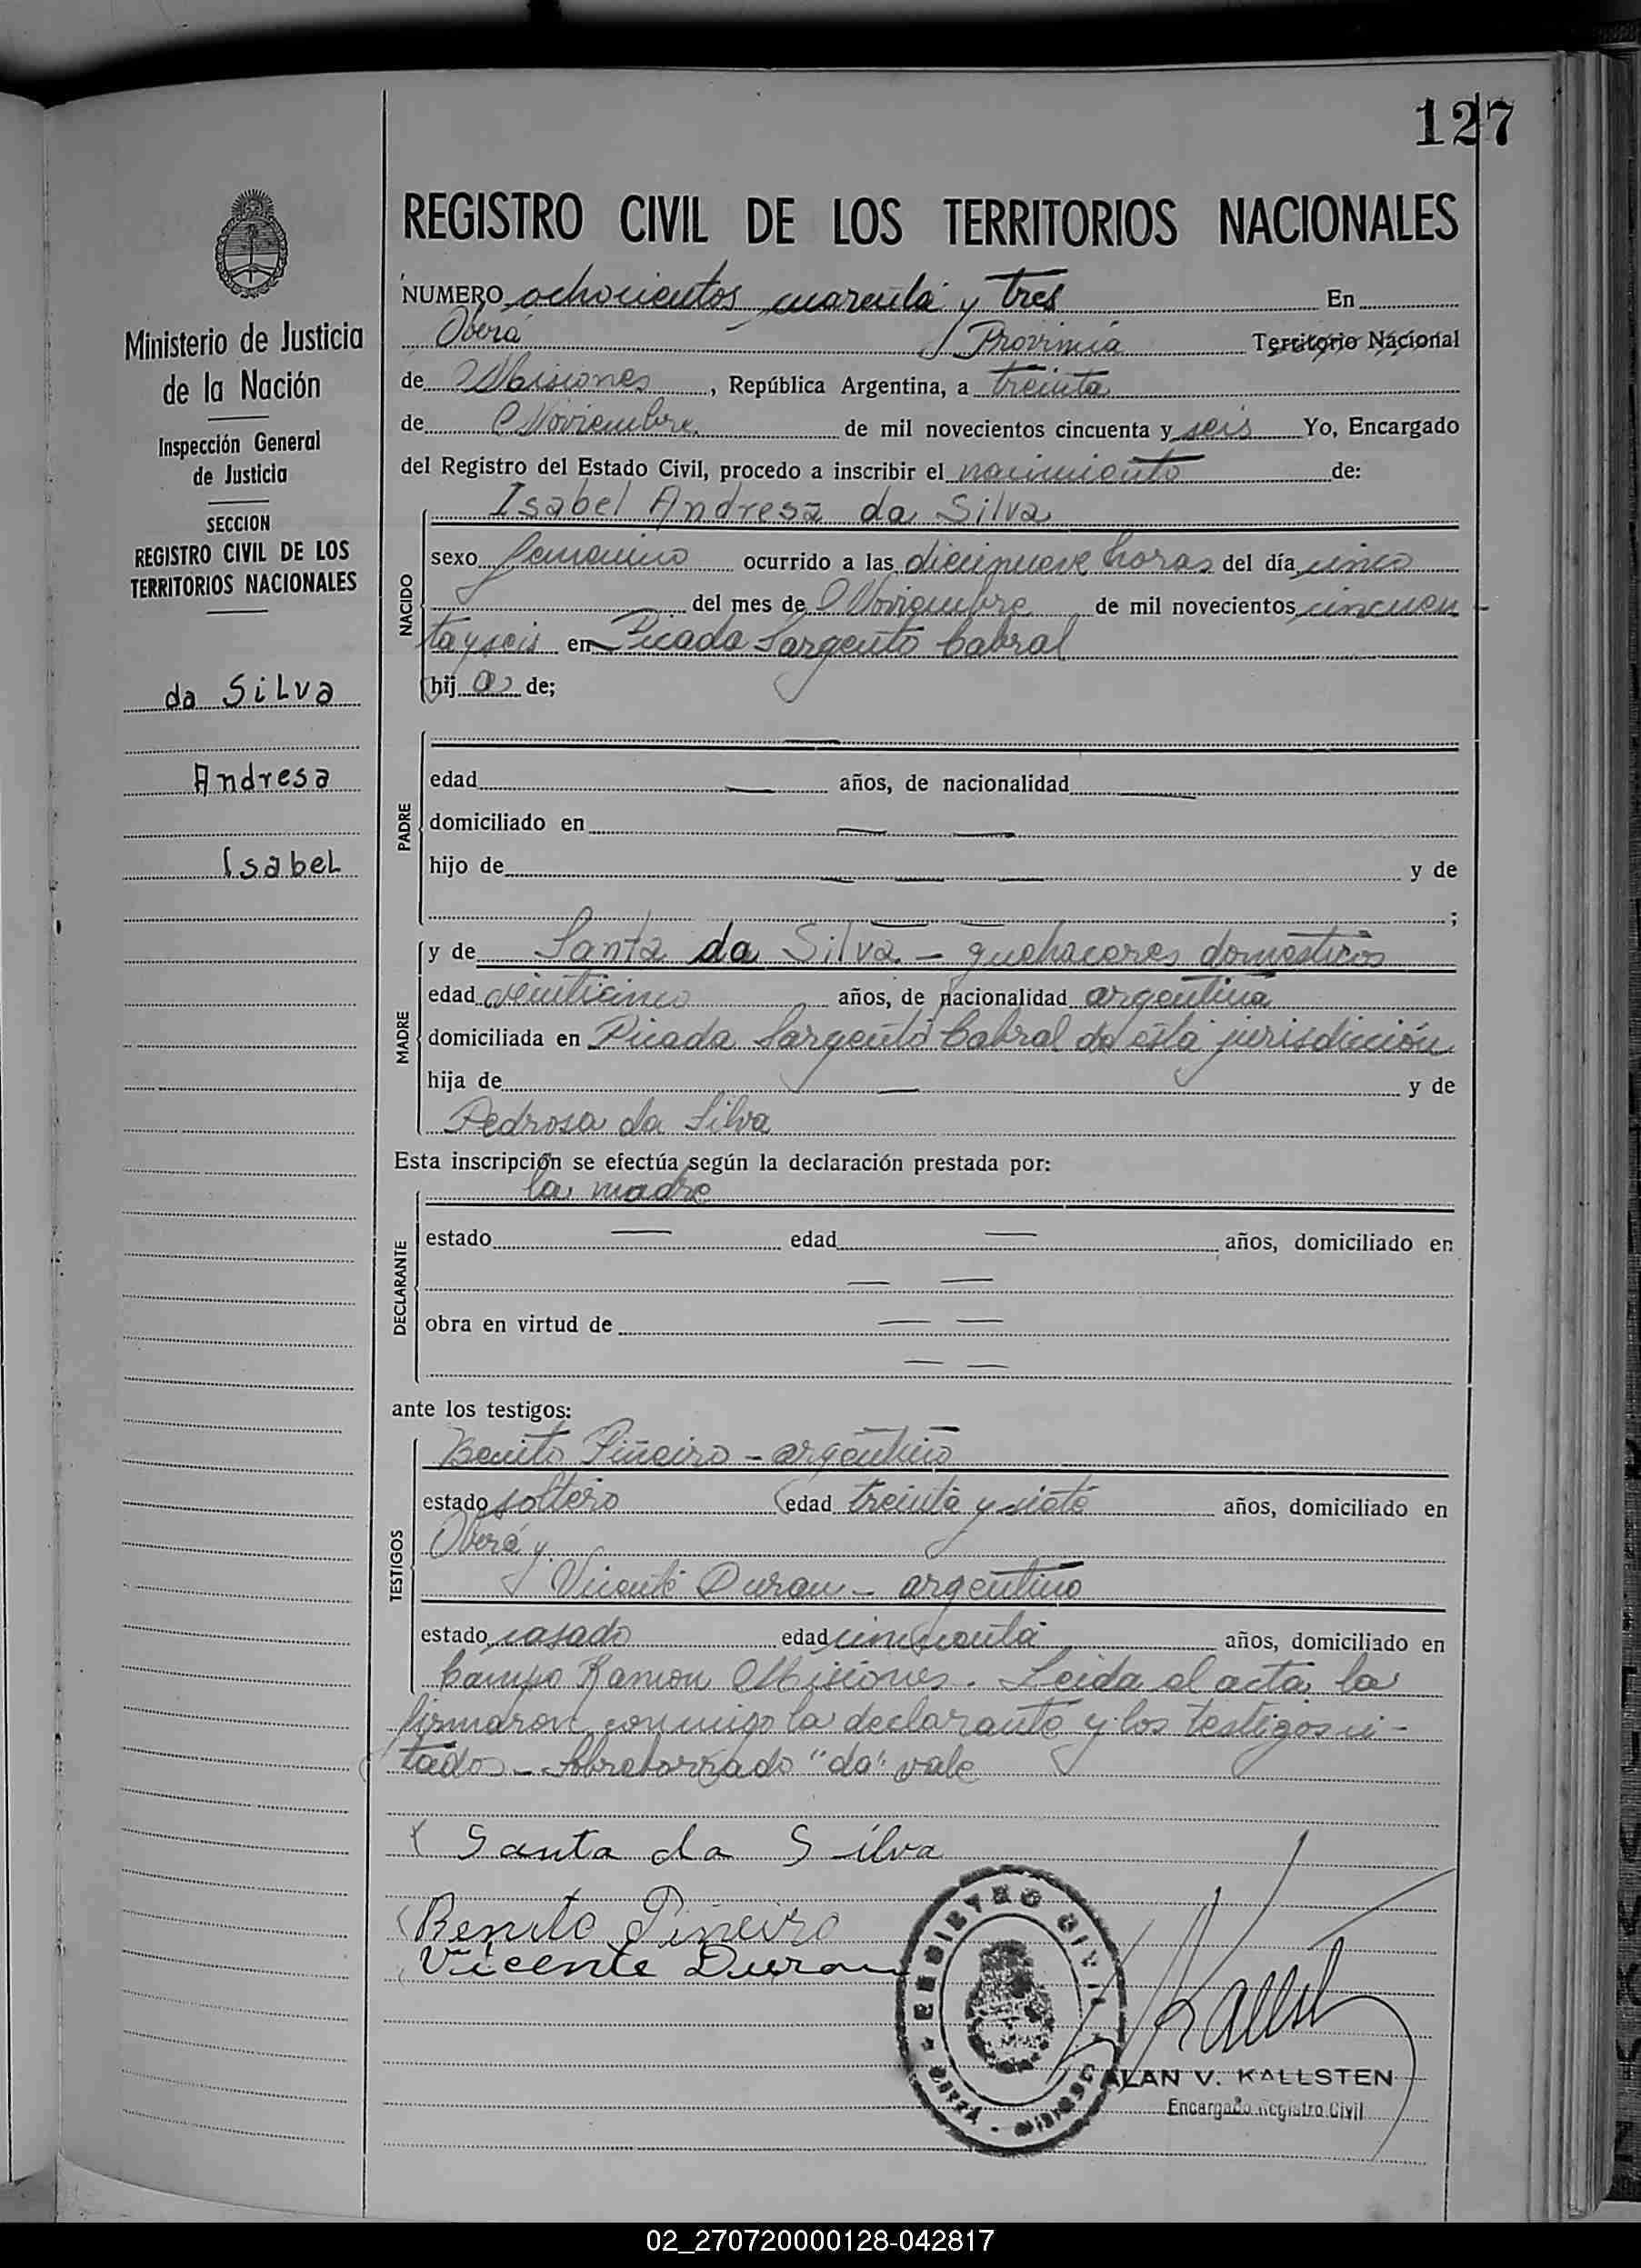 127
REGISTRO CIVIL DE LOS TERRITORIOS NACIONALES
Ministerio de Justicia
de la Nación
Inspección General
de Justicia
SECCION
REGISTRO CIVIL DE LOS
TERRITORIOS NACIONALES
da Silva
Andresa
Isabel
NUMERO ochocientos cuarenta y tres En
Oberá Provincia Territorio Nacional
de Misiones, República Argentina, a treinta
de Noviembre de mil novecientos cincuenta y seis Yo, Encargado
del Registro del Estado Civil, procedo a inscribir el nacimiento de:
NACIDO
Isabel Andresa da Silva
sexo femenino ocurrido a las diecinueve horas del día cinco
del mes de Noviembre de mil novecientos cincuen
ta y seis en Picada Sargento Cabral
hij a de;
PADRE
edad años, de nacionalidad
domiciliado en
hijo de y de
;
MADRE
y de Santa da Silva - quehaceres domesticos
edad veinticinco años, de nacionalidad argentina
domiciliada en Picada Sargento Cabral de esta jurisdicción
hija de — y de
Pedrosa da Silva
Esta inscripción se efectúa según la declaración prestada por:
DECLARANTE
la madre
estado — edad — años, domiciliado en
— —
obra en virtud de — —
— —
ante los testigos:
TESTIGOS
Benito Piñeiro - argentino
estado soltero edad treinta y siete años, domiciliado en
Oberá y
Vicente Duran - argentino
estado casado edad cincuenta años, domiciliado en
Campo Ramon Misiones. Leida el acta la
firmaron conmigo la declarante y los testigos ci-
tados - Sobreborrado "da" vale
Santa da Silva
Benito Piñeiro
Vicente Duran
REGISTRO CIVIL
OBERA
MISIONES
Kallst
ALAN V. KALLSTEN
Encargado Registro Civil
02_270720000128-042817